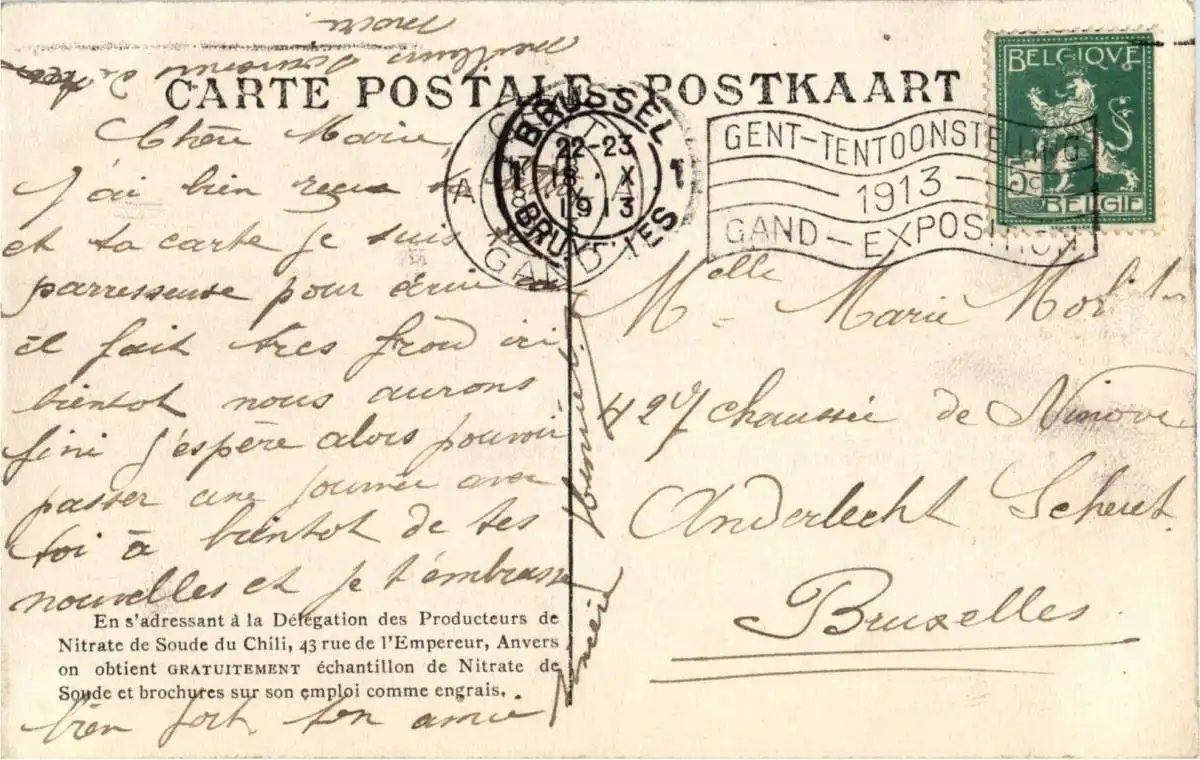 CARTE POSTALE POSTKAART
BELGIQUE
5c
BELGIE
BRUSSEL
22-23
1 18 · X 1
1913
BRUXELLES
GAND
GENT-TENTOONSTELLING
1913
GAND-EXPOSITION
Chère Marie,
J'ai bien reçu
et ta carte je suis
parresseuse pour écrire
il fait tres froid ici
bientot nous aurons
fini j'espère alors pouvoir
passer une journée avec
toi à bientot de tes
nouvelles et je t'embrasse
bien fort ton amie
En s'adressant à la Délégation des Producteurs de
Nitrate de Soude du Chili, 43 rue de l'Empereur, Anvers
on obtient GRATUITEMENT échantillon de Nitrate de
Soude et brochures sur son emploi comme engrais.
Melle Marie
427 chaussée de Ninove
Anderlecht Scheut
Bruxelles